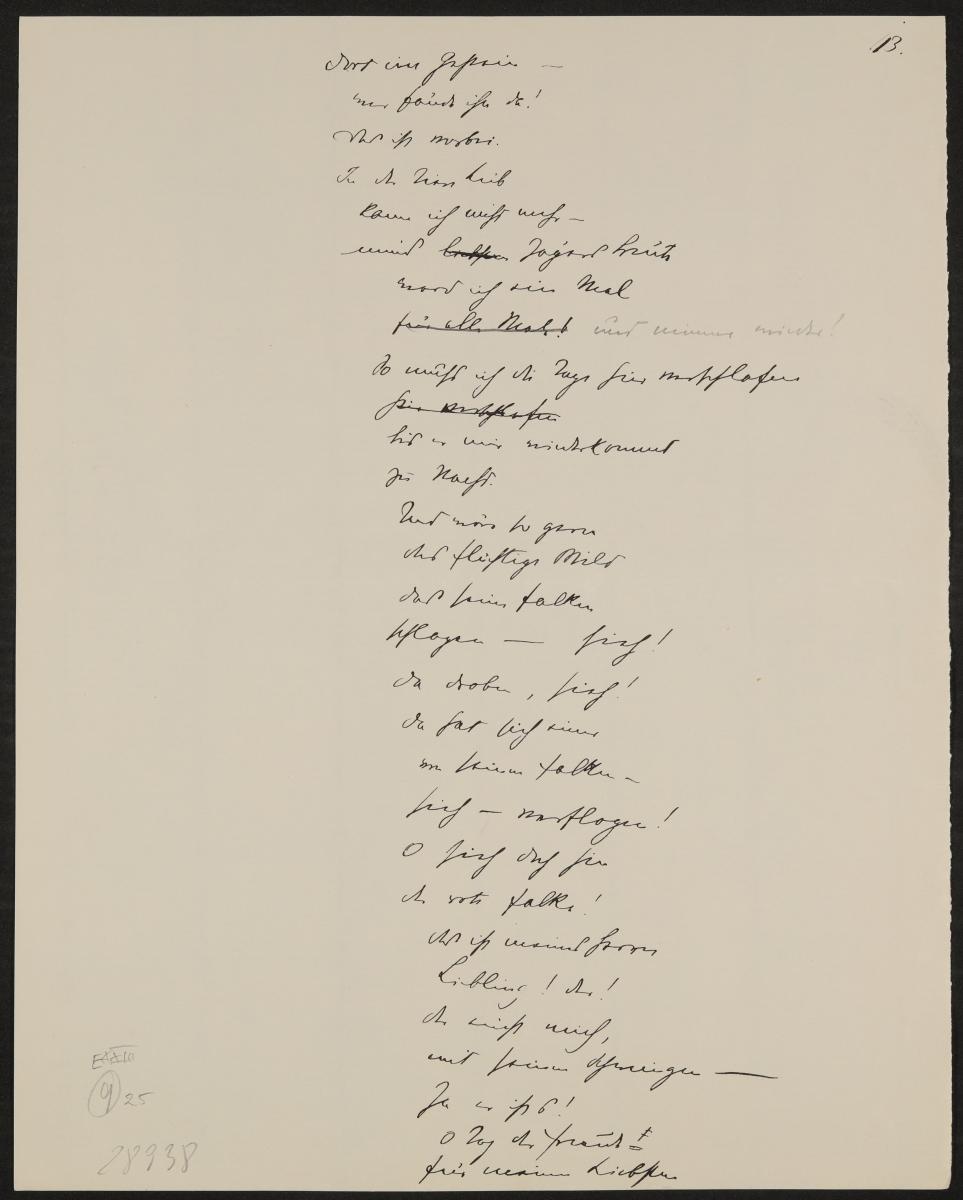 13.
Dort im Gestein —
wer fände ihn da!
Das ist vorbei.
In der Tiere Leib
kann ich nicht mehr —
meines Liebsten Jägers Beute
ward ich ein Mal
für alle Male! und nimmer wieder!
So muss ich die Tage hier verschlafen
hier verschlafen
bis er mir wiederkommt
zu Nacht.
Und wäre so gern
das flüchtige Wild
das seine Falken
schlagen — sieh!
da droben, sieh!
da hat sich einer
von seinen Falken —
sieh — verflogen!
O sieh doch hin
der rote Falke!
das ist meines Herrn
Liebling! der!
der einst mich,
mit seinen Schwingen —
Ja er ists!
O Tag der Freude!
für meinen Liebsten
9 25
28938